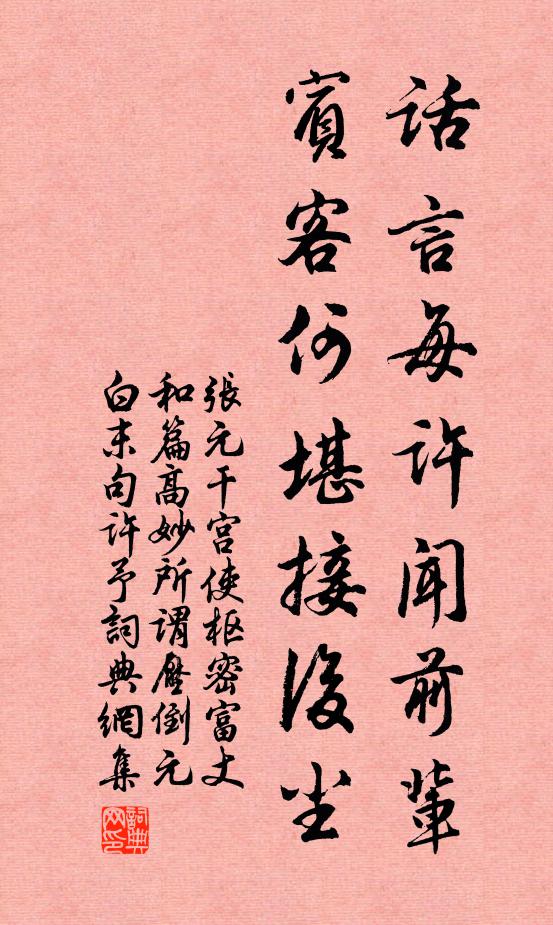 话言每许闻前辈
賓客何堪接後尘
張元干宫使枢密富丈
和篇高妙所謂壓倒元
白末句许予詞典網集
詞典网印